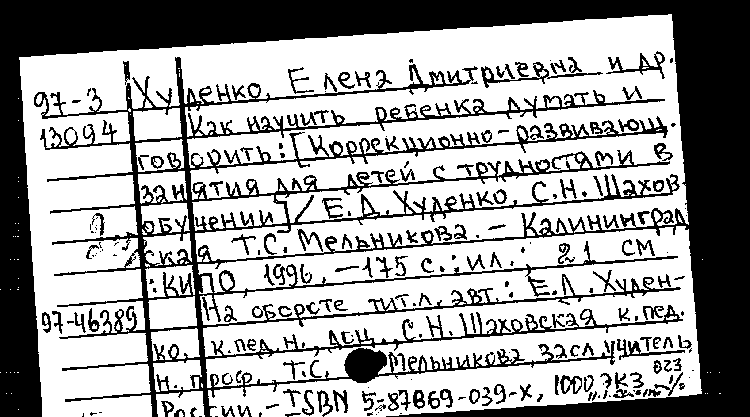 97-3 Худенко, Елена Дмитриевна и др.
13094 Как научить ребенка думать и
говорить: [Коррекционно-развивающ.
занятия для детей с трудностями в
обучении] / Е.Д. Худенко, С.Н. Шахов-
ская, Т.С. Мельникова. - Калининград
: КИПО, 1996. - 175 с.: ил.; 21 см
97-46389 На обороте тит.л. авт.: Е.Д. Худен-
ко, к.пед.н., доц., С.Н. Шаховская, к.пед.
н., проф., Т.С. Мельникова, засл. учитель
России. - ISBN 5-87869-039-X, 1000 экз